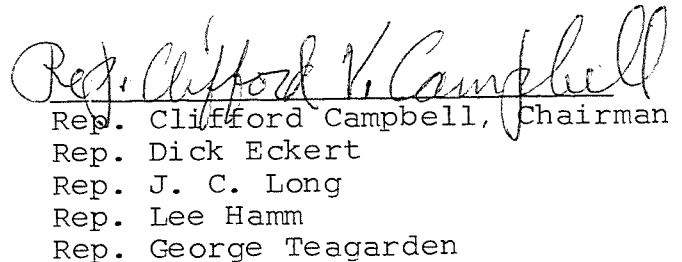 Rep. Clifford V. Campbell
Rep. Clifford Campbell, Chairman
Rep. Dick Eckert
Rep. J. C. Long
Rep. Lee Hamm
Rep. George Teagarden